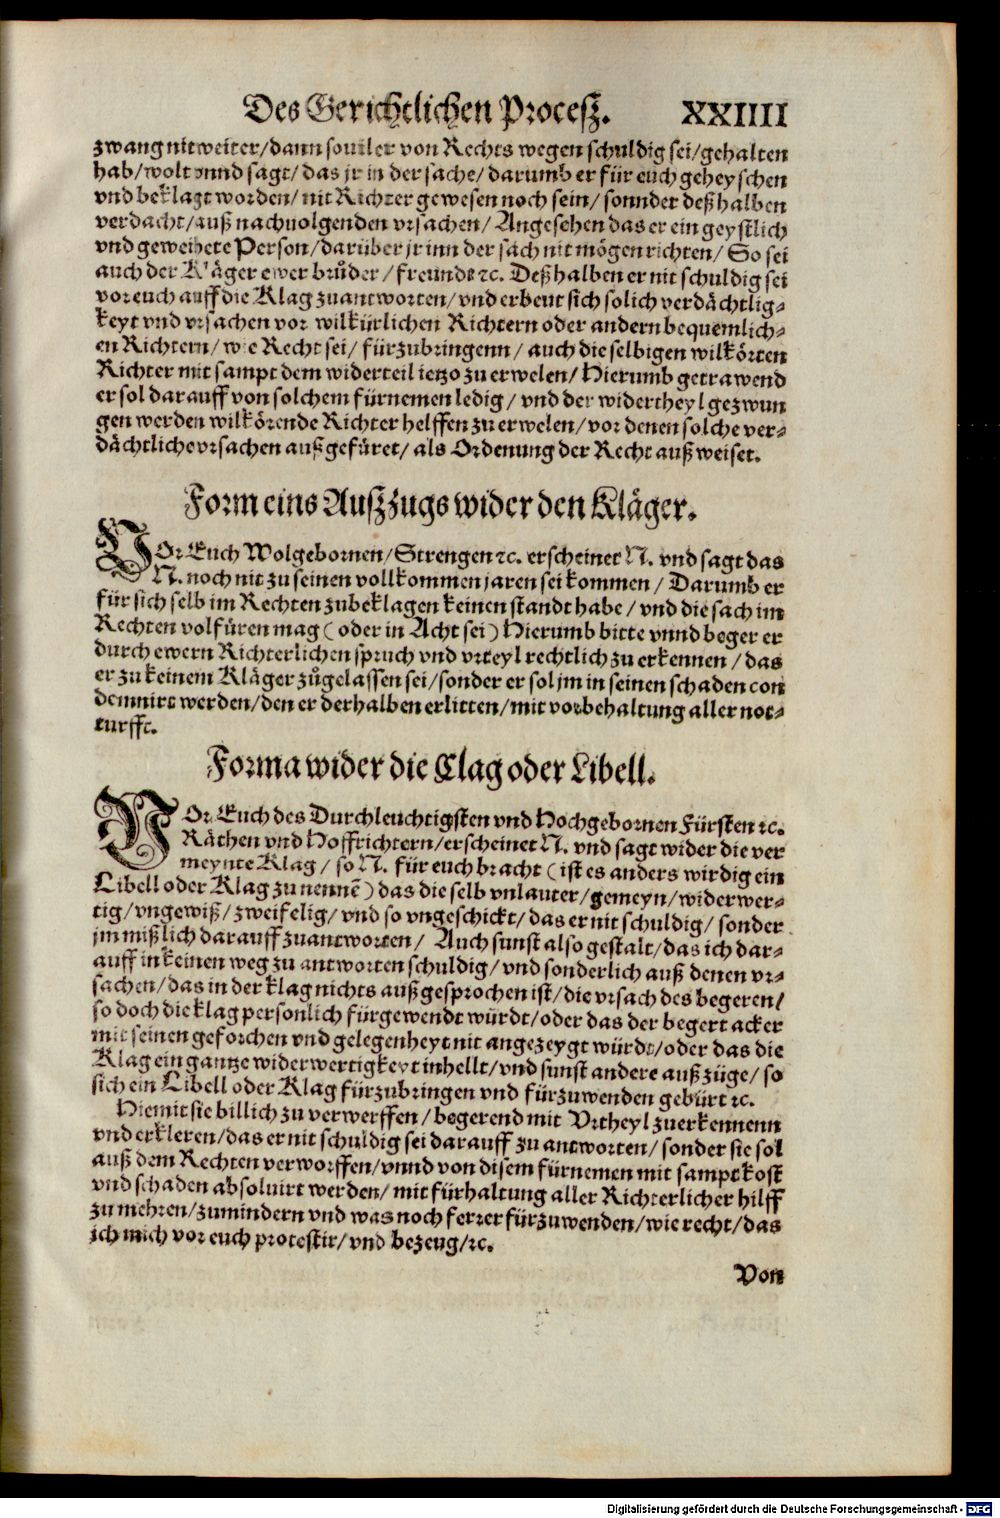 Des Gerichtlichen Procesz. XXIIII
zwang nit weiter/dann souiler von Rechts wegen schuldig sei/gehalten
hab/wolt vnnd sagt/das jr in der sache/darumb er für euch geheyschen
vnd beklagt worden/nit Richter gewesen noch sein/sonnder deß halben
verdacht/auß nachuolgenden vrsachen/Angesehen das er ein geystlich
vnd geweihete Person/darüber jr inn der sach nit mögen richten/So sei
auch der Kläger ewer brůder/freunde ꝛc. Deß halben er nit schuldig sei
vor euch auff die Klag zuantworten/vnd erbeut sich solich verdächtlig⸗
keyt vnd vrsachen vor wilkürlichen Richtern oder andern bequemlich⸗
en Richtern/wie Recht sei/fürzubringenn/auch die selbigen wilkörten
Richter mit sampt dem widerteil ietzo zu erwelen/Hierumb getrawend
er sol darauff von solchem fürnemen ledig/vnd der widertheyl gezwun
gen werden wilkörende Richter helffen zu erwelen/vor denen solche ver⸗
dächtliche vrsachen auß gefüret/als Ordenung der Recht auß weiset.
Form eins Auszzugs wider den Kläger.
VOr Euch Wolgebornen/Strengen ꝛc. erscheinet N. vnd sagt das
N. noch nit zu seinen vollkommen jaren sei kommen/Darumb er
für sich selb im Rechten zubeklagen keinen standt habe/vnd die sach im
Rechten volfüren mag (oder in Acht sei) Hierumb bitte vnnd beger er
durch ewern Richterlichen spruch vnd vrteyl rechtlich zu erkennen/das
er zu keinem Kläger zůgelassen sei/sonder er sol jm in seinen schaden con
demnirt werden/den er derhalben erlitten/mit vorbehaltung aller not⸗
turfft.
Forma wider die Clag oder Libell.
VOr Euch des Durchleuchtigsten vnd Hochgebornen Fürsten ꝛc.
Räthen vnd Hoffrichtern/erscheinet N. vnd sagt wider die ver
meynte Klag/so N. für euch bracht (ist es anders wirdig ein
Libell oder Klag zu nennẽ) das die selb vnlauter/gemeyn/widerwer⸗
tig/vngewiß/zweifelig/vnd so vngeschickt/das er nit schuldig/sonder
jm mißlich darauff zuantworten/Auch sunst also gestalt/das ich dar⸗
auff in keinen weg zu antworten schuldig/vnd sonderlich auß denen vr⸗
sachen/das in der klag nichts auß gesprochen ist/die vrsach des begeren/
so doch die klag personlich fürgewendt würdt/oder das der begert acker
mit seinen geforchen vnd gelegenheyt nit angezeygt würdt/oder das die
Klag ein gantze widerwertigkeyt inhellt/vnd sunst andere auß züge/so
sich ein Libell oder Klag fürzubringen vnd fürzuwenden gebürt ꝛc.
Hiemit sie billich zu verwerffen/begerend mit Vrtheyl zuerkennenn
vnd erkleren/das er nit schuldig sei darauff zu antworten/sonder sie sol
auß dem Rechten verworffen/vnnd von disem fürnemen mit sampt kost
vnd schaden absoluirt werden/mit fürhaltung aller Richterlicher hilff
zu mehren/zumindern vnd was noch ferrer fürzuwenden/wie recht/das
ich mich vor euch protestir/vnd bezeug/ꝛc.
Von
Digitalisierung gefördert durch die Deutsche Forschungsgemeinschaft - DFG